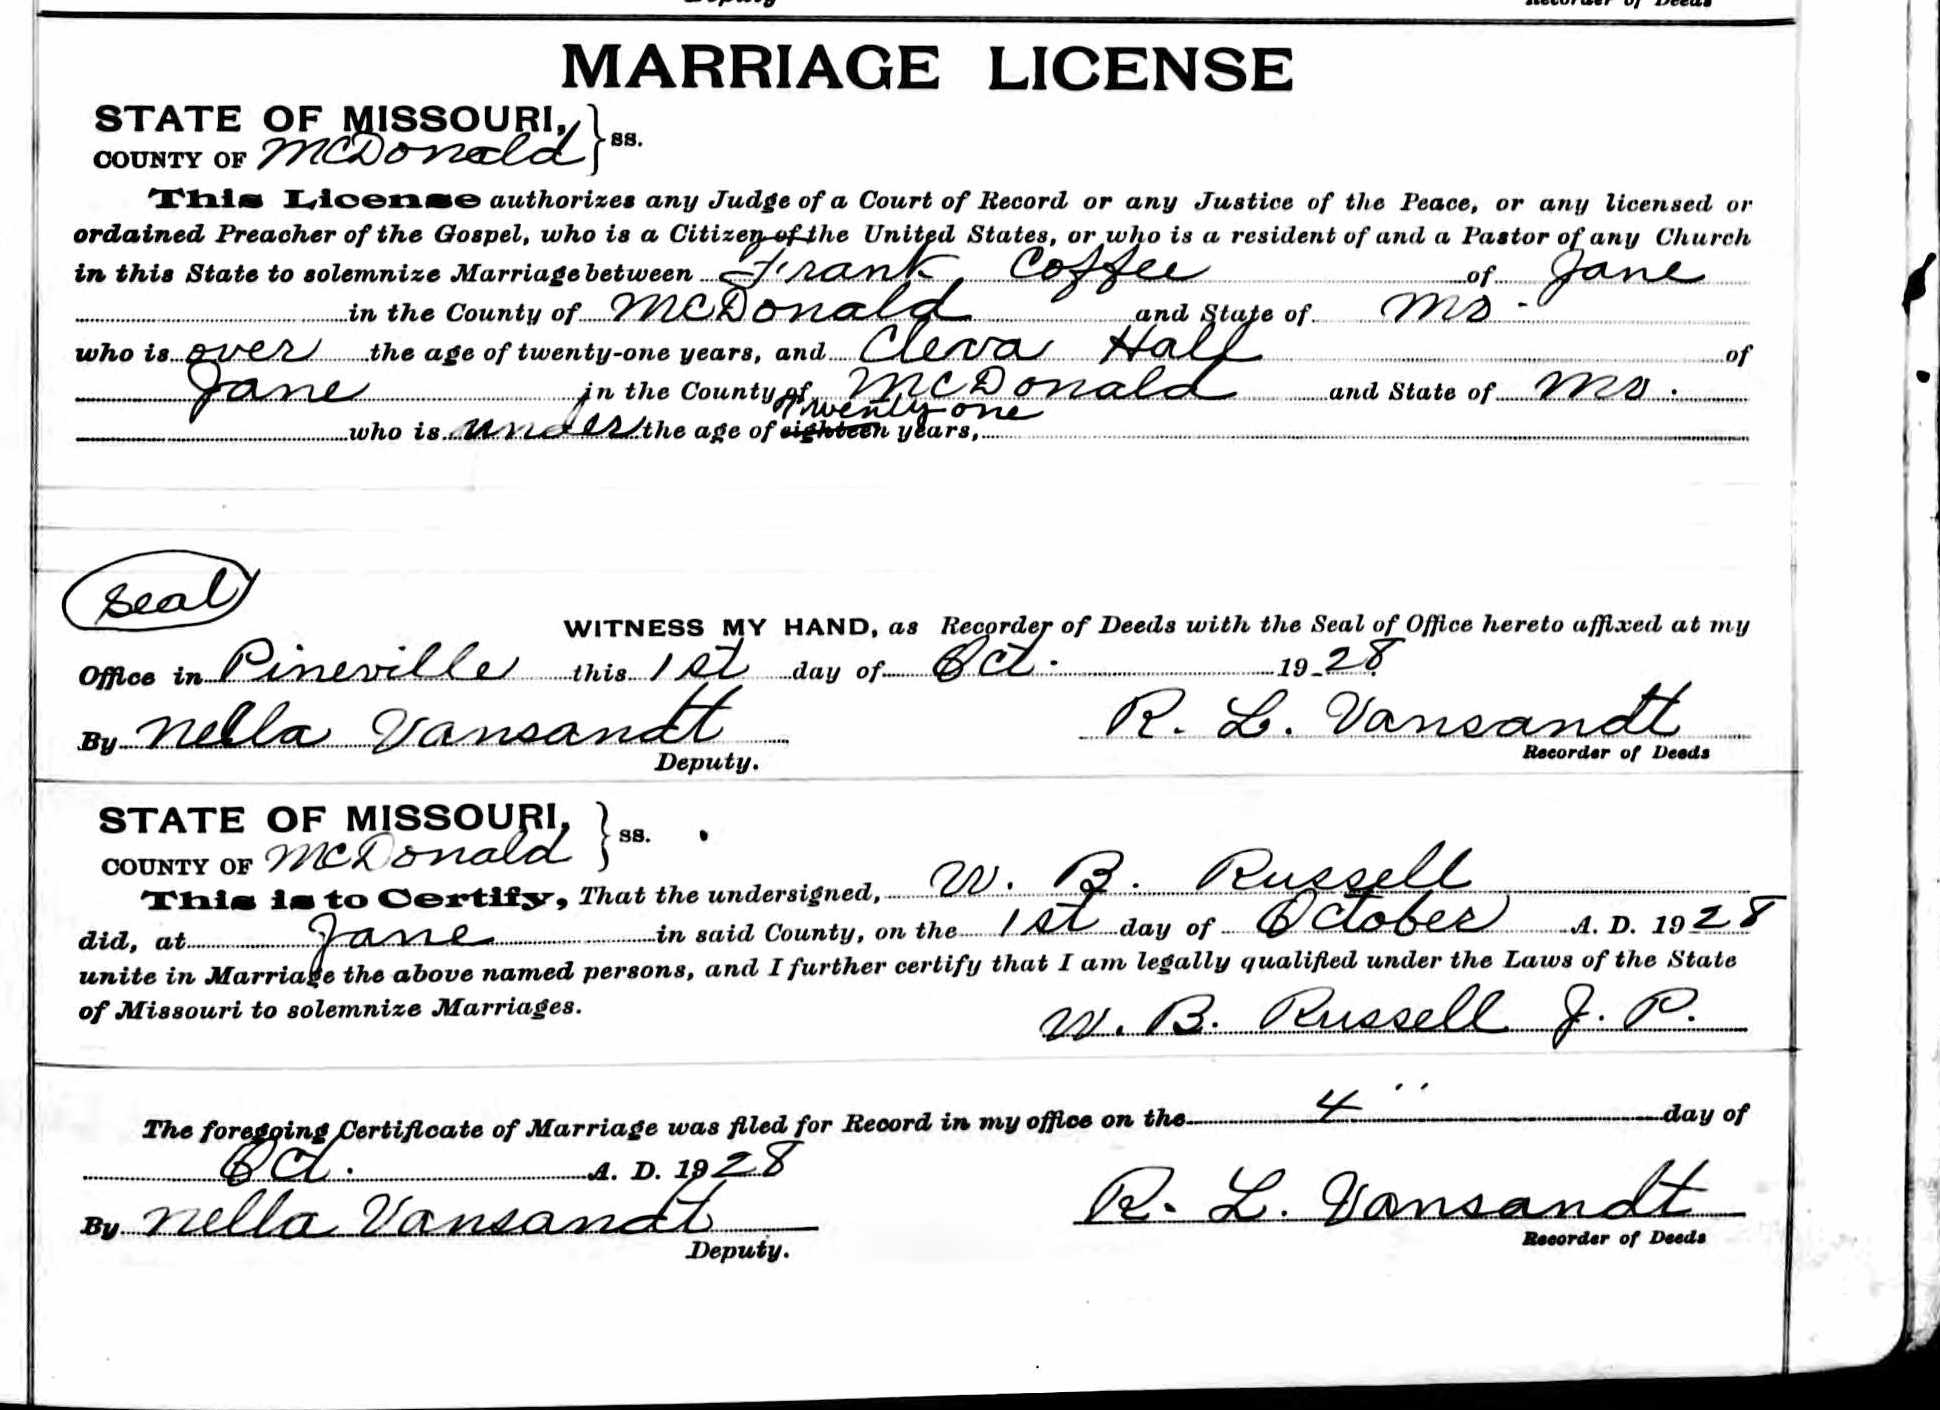 Deputy
Recorder of Deeds
MARRIAGE LICENSE
STATE OF MISSOURI, } ss.
COUNTY OF McDonald
This License authorizes any Judge of a Court of Record or any Justice of the Peace, or any licensed or
ordained Preacher of the Gospel, who is a Citizen of the United States, or who is a resident of and a Pastor of any Church
in this State to solemnize Marriage between Frank Coffee of Jane
in the County of McDonald and State of Mo -
who is over the age of twenty-one years, and Cleva Hall of
Jane in the County of McDonald and State of Mo.
Twenty-one
who is under the age of eighteen years,
Seal
WITNESS MY HAND, as Recorder of Deeds with the Seal of Office hereto affixed at my
Office in Pineville this 1st day of Oct. 1928
By Nella Vansandt R. L. Vansandt
Deputy. Recorder of Deeds
STATE OF MISSOURI, } ss.
COUNTY OF McDonald
This is to Certify, That the undersigned, W. B. Russell
did, at Jane in said County, on the 1st day of October A. D. 1928
unite in Marriage the above named persons, and I further certify that I am legally qualified under the Laws of the State
of Missouri to solemnize Marriages.
W. B. Russell J. P.
The foregoing Certificate of Marriage was filed for Record in my office on the 4 " day of
Oct. A. D. 1928
By Nella Vansandt R. L. Vansandt
Deputy. Recorder of Deeds